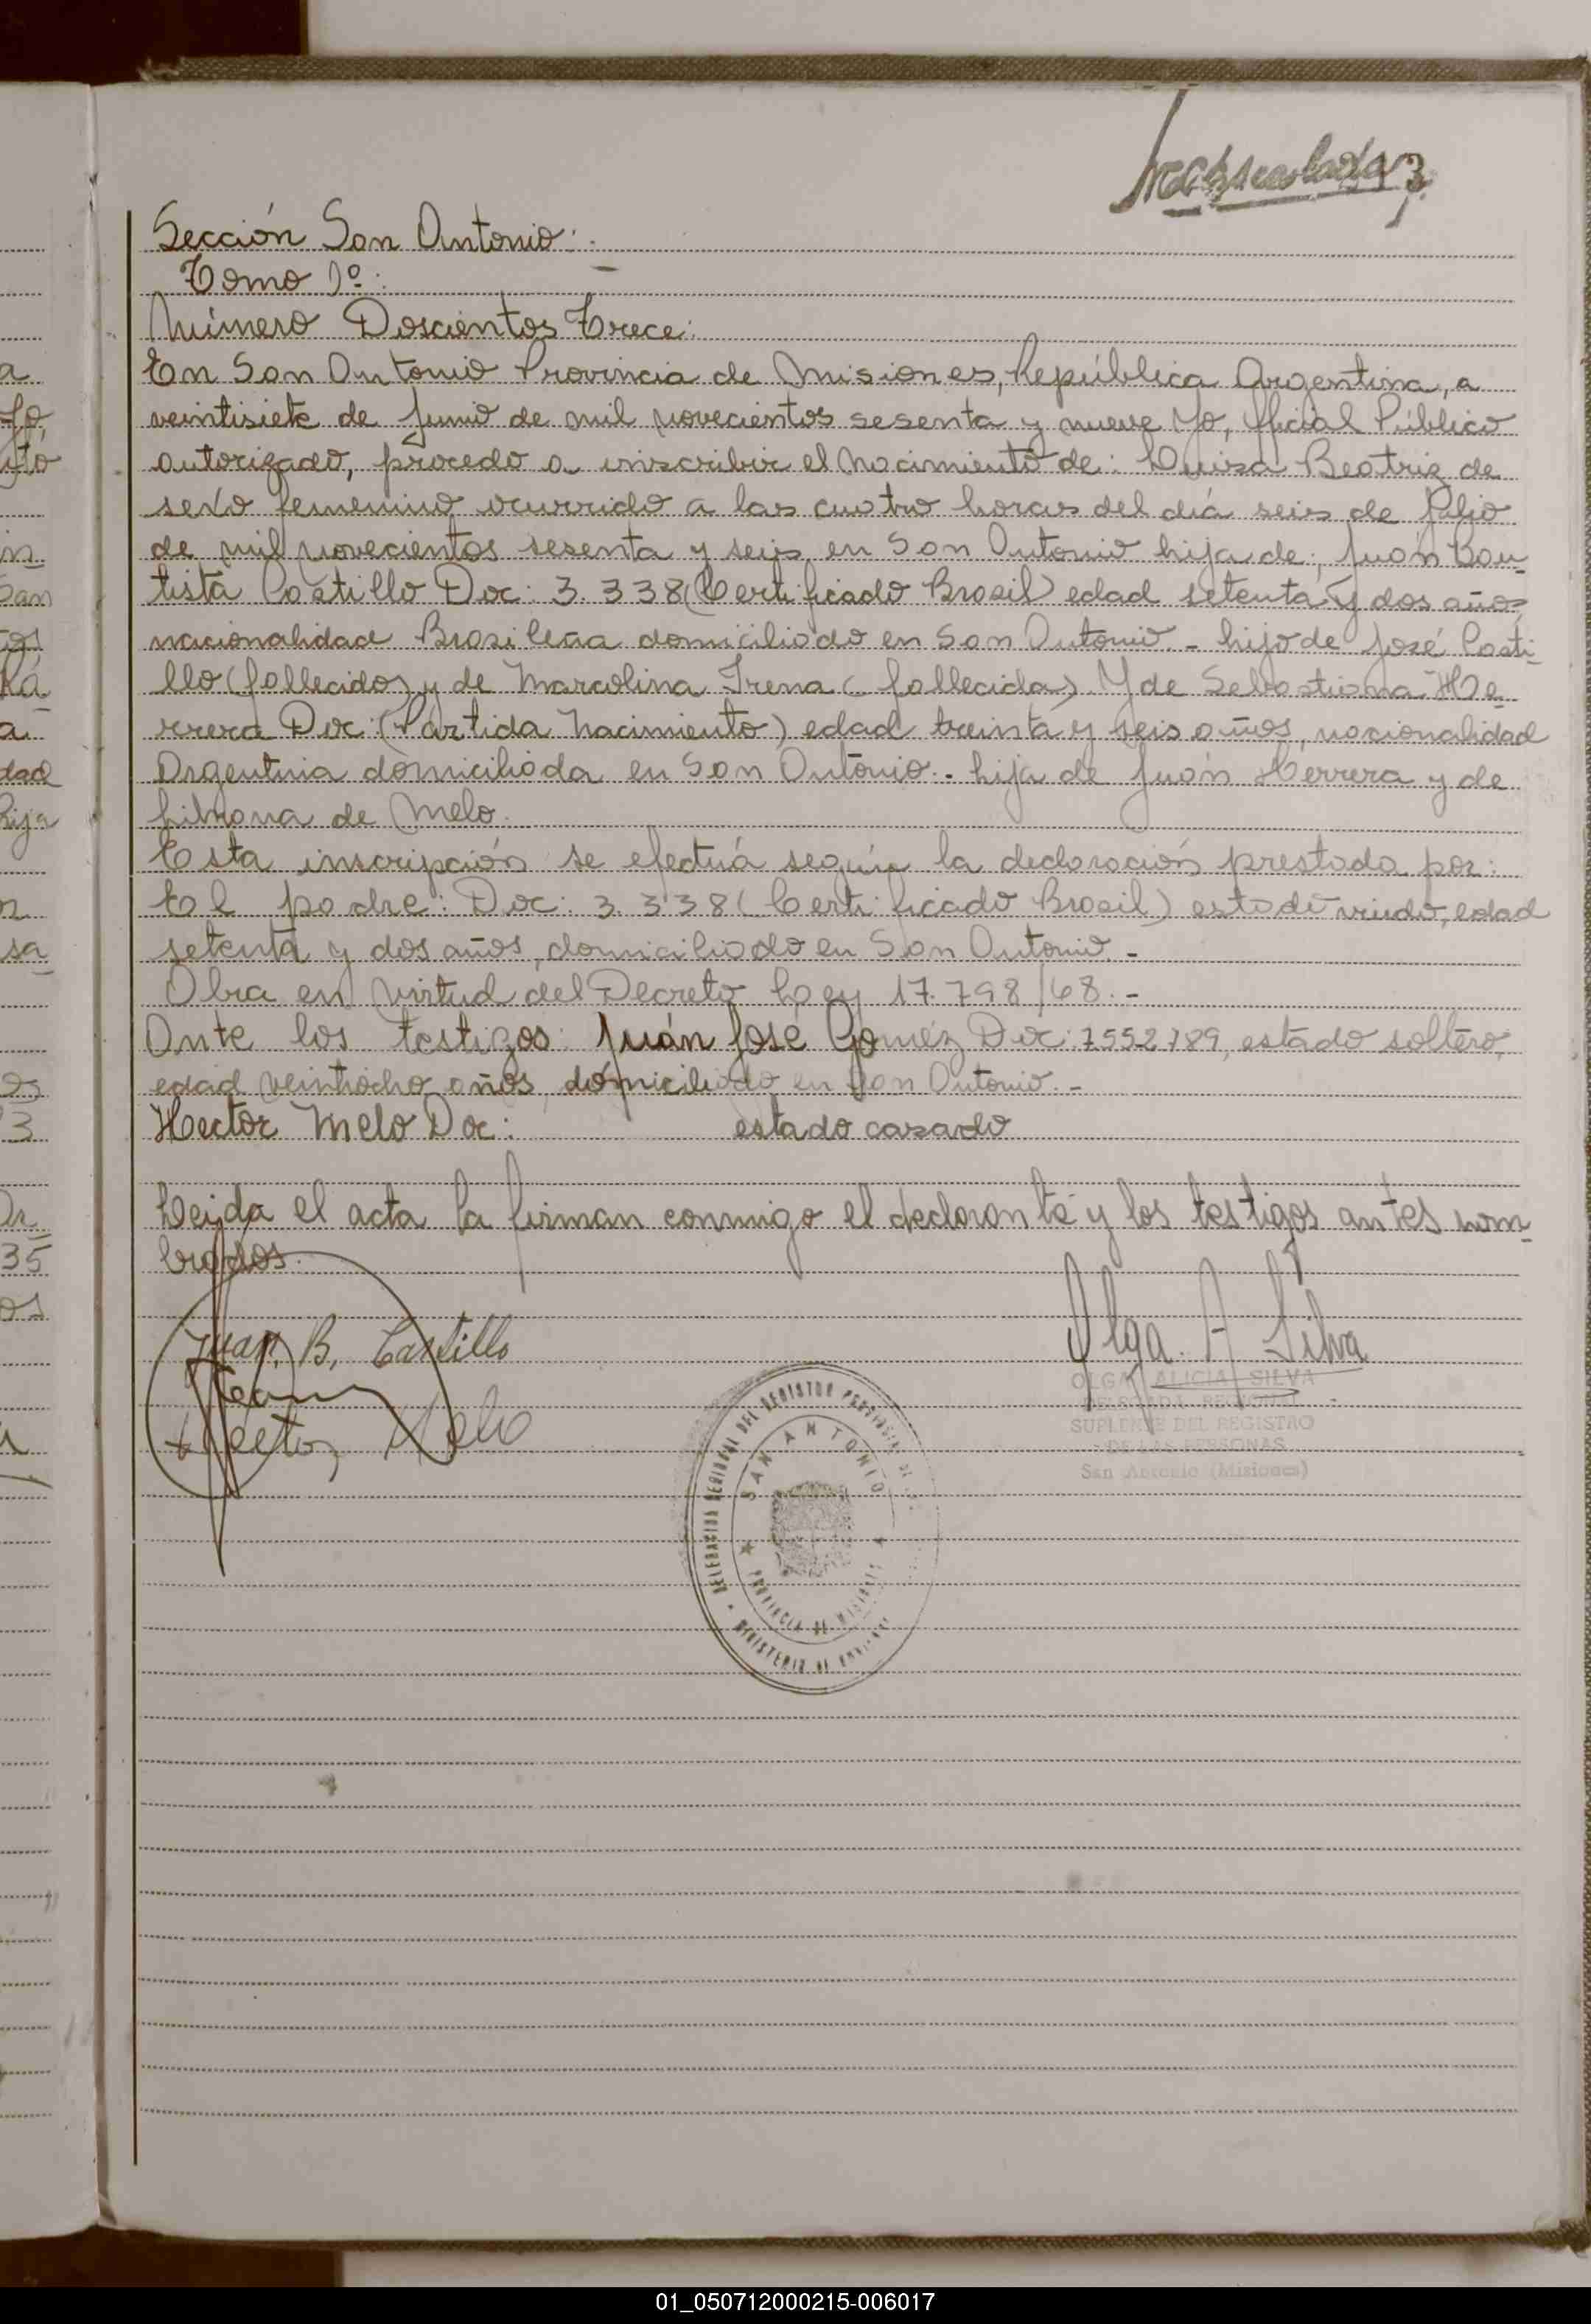 Sección San Antonio:
Tomo 1º:
Número Doscientos Trece:
En San Antonio Provincia de Misiones, República Argentina, a
veintisiete de Junio de mil novecientos sesenta y nueve Yo, Oficial Público
autorizado, procedo a inscribir el Nacimiento de: Luisa Beatriz de
sexo femenino ocurrido a las cuatro horas del diá seis de Julio
de mil novecientos sesenta y seis en San Antonio hija de: Juán Bau-
tista Castillo Doc: 3.338 (Certificado Brasil) edad setenta y dos años
nacionalidad Brasilera domiciliado en San Antonio.- hijo de José Casti-
llo (fallecido) y de Marcolina Irena (fallecida) Y de Sebastiana He-
rrera Doc: (Partida Nacimiento) edad treinta y seis años, nacionalidad
Argentina domiciliada en San Antonio.- hija de Juán Herrera y de
de Melo.
Esta inscripción se efectuá según la declaración prestada por:
El padre: Doc: 3.338 (Certificado Brasil) estado viudo, edad
setenta y dos años, domiciliado en San Antonio.-
Obra en virtud del Decreto Ley 17.798/68.-
Ante los testigos: Juán José Goméz Doc: 7552789, estado soltero,
edad veintiocho años, domiciliado en San Antonio.-
Hector Melo Doc: estado casado
Leida el acta la firman conmigo el declarante y los testigos antes nom-
brados.
Juan. B. Castillo
Olga. A Silva
Héctor Melo
OLGA ALICIA SILVA
DELEGADA REGIONAL
SUPLENTE DEL REGISTRO
DE LAS PERSONAS
San Antonio (Misiones)
DELEGACION REGIONAL DEL REGISTRO PROVINCIAL DE
SAN ANTONIO
PROVINCIA DE MISIONES
MINISTERIO DE
01_050712000215-006017